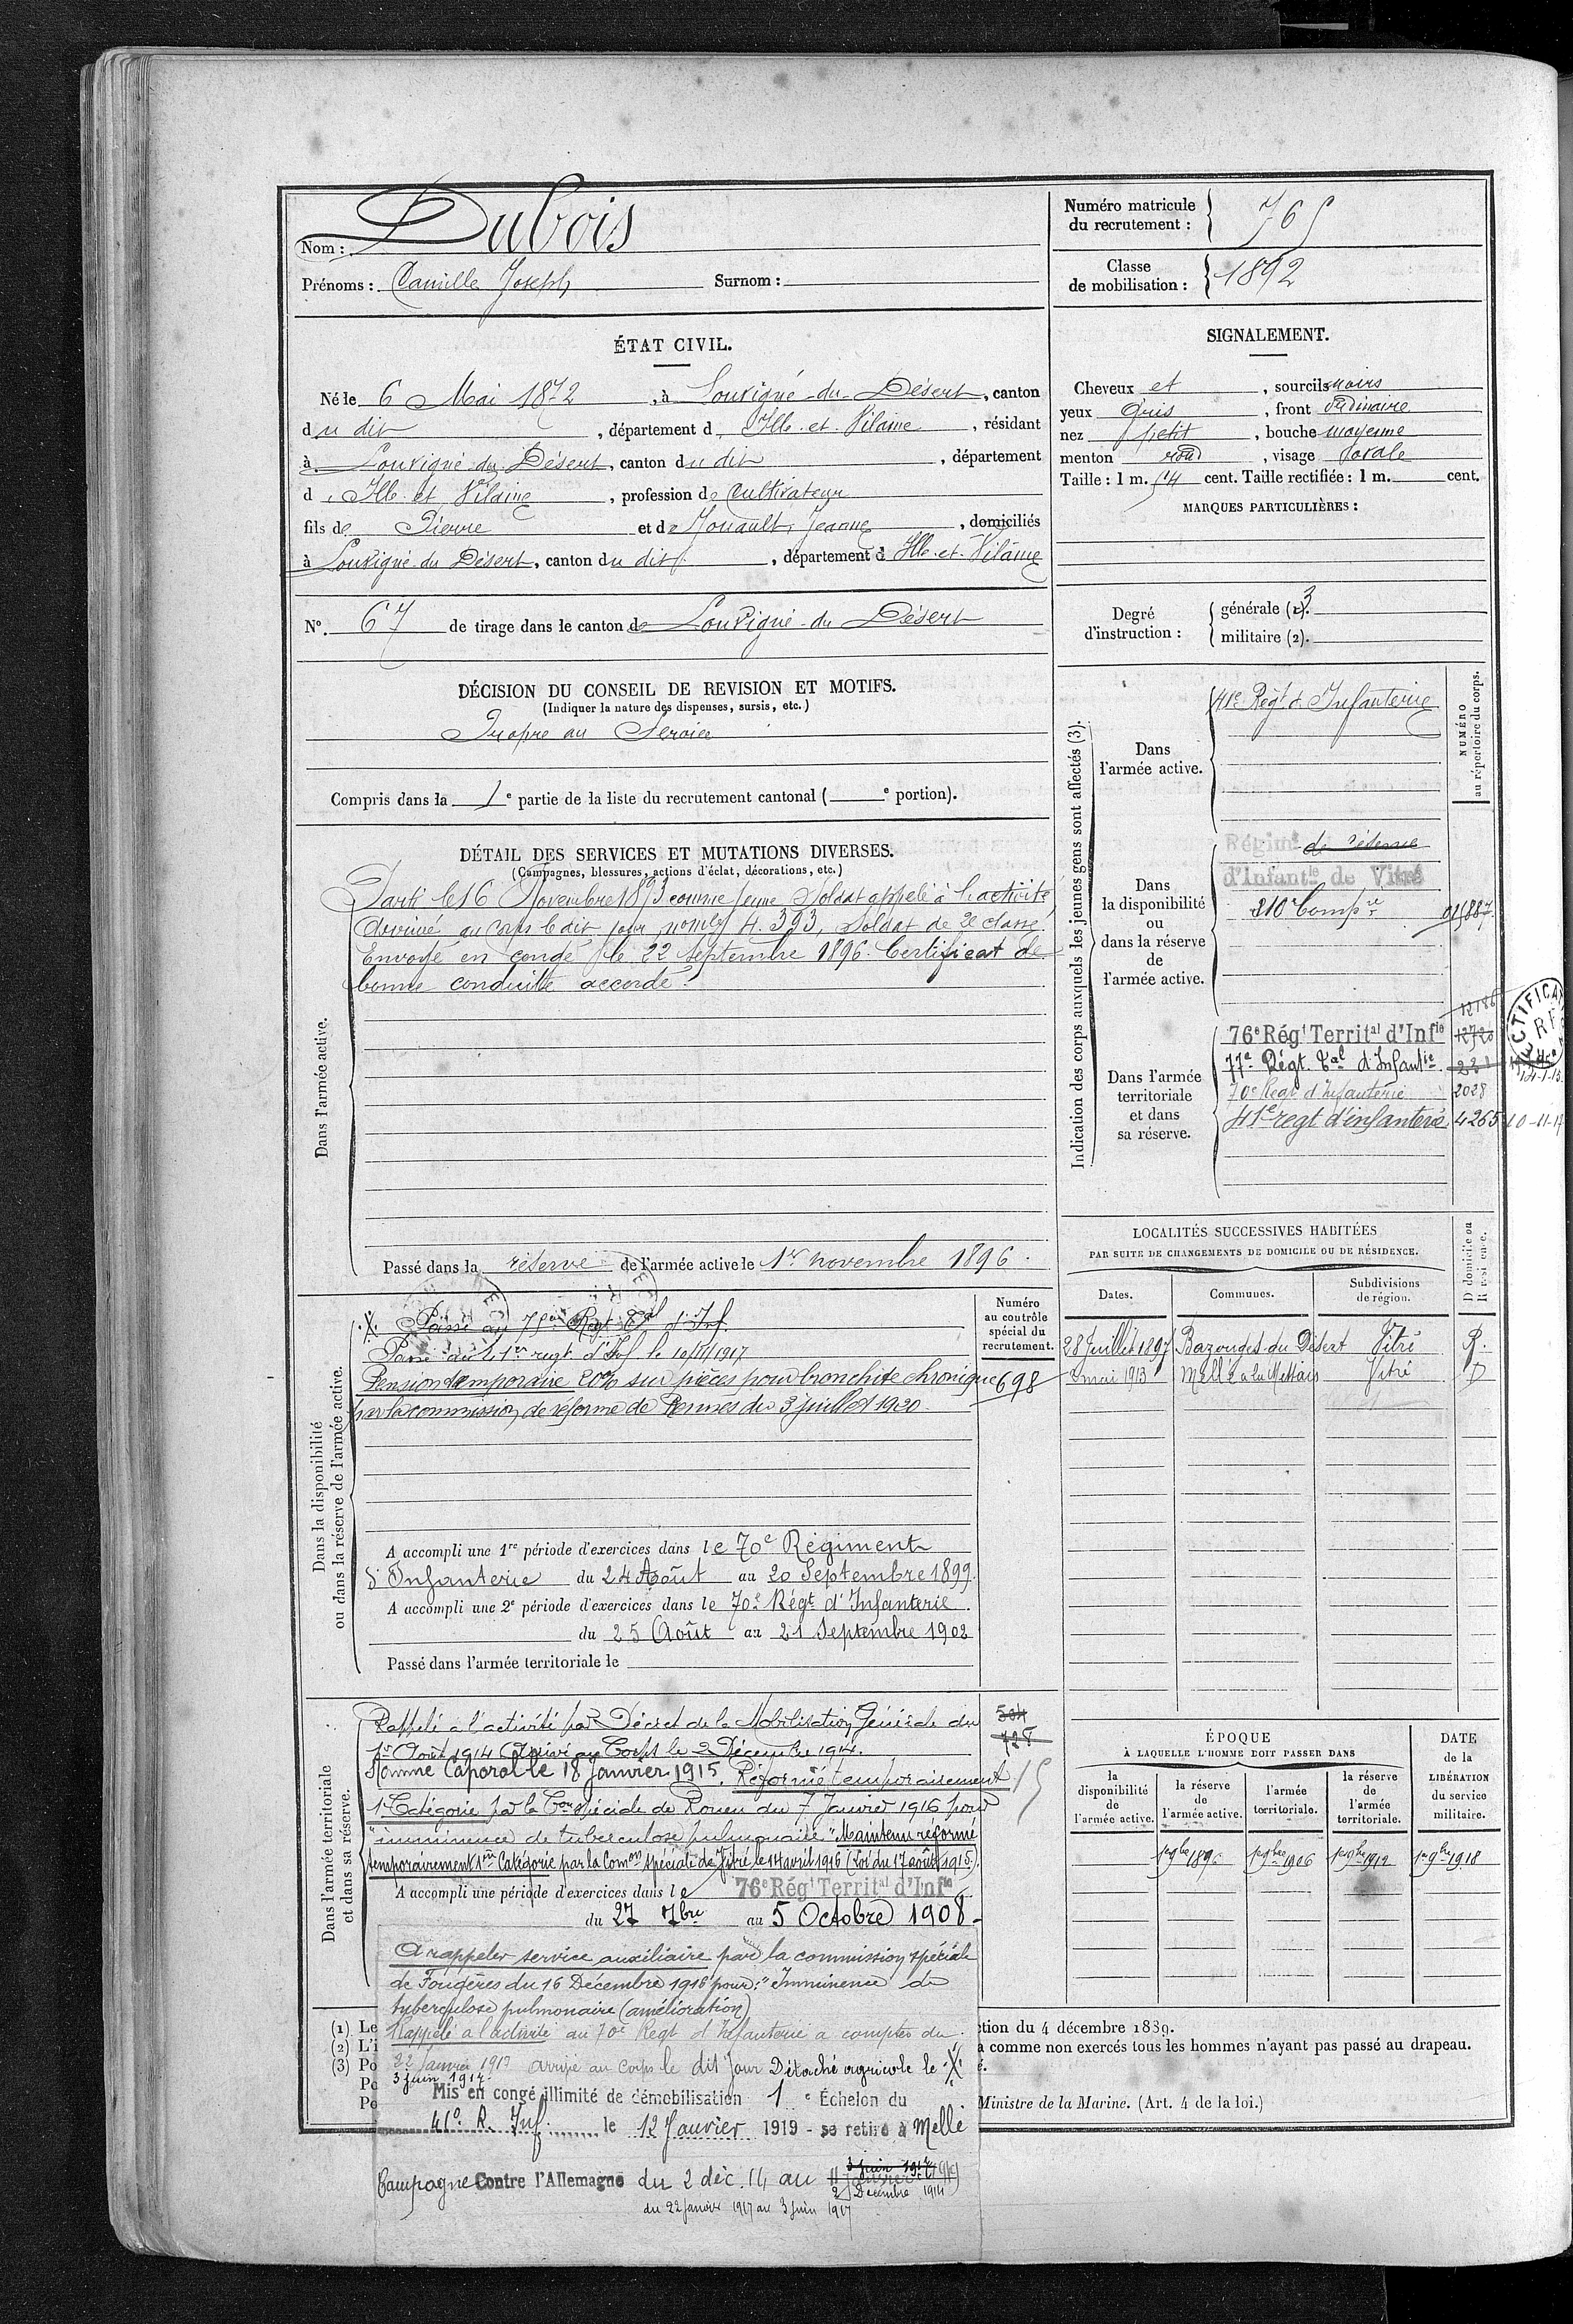 Nom : Dubois
Prénoms : Camille Joseph Surnom :
Numéro matricule du recrutement : 765
Classe de mobilisation : 1892
ÉTAT CIVIL.
Né le 6 Mai 1872, à Louvigné-du-Désert, canton
du dit, département d Ille-et-Vilaine, résidant
à Louvigné du Désert, canton du dit, département
d Ille et Vilaine, profession de Cultivateur
fils de Pierre et de Jouault, Jeanne, domiciliés
à Louvigné du Désert, canton du dit, département d Ille-et-Vilaine
N°. 67 de tirage dans le canton de Louvigné-du-Désert
SIGNALEMENT.
Cheveux et, sourcils noirs
yeux Gris, front ordinaire
nez petit, bouche moyenne
menton rond, visage ovale
Taille : 1 m. 54 cent. Taille rectifiée : 1 m. cent.
MARQUES PARTICULIÈRES :
Degré d'instruction : générale (2). 3
militaire (2).
DÉCISION DU CONSEIL DE REVISION ET MOTIFS.
(Indiquer la nature des dispenses, sursis, etc.)
Propre au Service
Compris dans la 1e partie de la liste du recrutement cantonal ( e portion).
DÉTAIL DES SERVICES ET MUTATIONS DIVERSES.
(Campagnes, blessures, actions d'éclat, décorations, etc.)
Dans l'armée active.
Parti le 16 Novembre 1893 comme jeune Soldat appelé à l'activité,
arrivé au corps le dit jour, nomle 4.393, Soldat de 2e classe.
Envoyé en congé le 22 Septembre 1896. Certificat de
bonne conduite accordé.
Passé dans la réserve de l'armée active le 1er novembre 1896.
Indication des corps auxquels les jeunes gens sont affectés (3).
NUMÉRO au répertoire du corps.
Dans l'armée active.
41e Régt d'Infanterie
Dans la disponibilité ou dans la réserve de l'armée active.
Régimt de réserve
d'Infantie de Vitré
210e Compie
Dans l'armée territoriale et dans sa réserve.
76e Régt Territal d'Infie 12720
77e Régt Tal d'Infantie 221
70e Regt d'Infanterie 2028
41e regt d'infanterie 4265
LOCALITÉS SUCCESSIVES HABITÉES
PAR SUITE DE CHANGEMENTS DE DOMICILE OU DE RÉSIDENCE.
Dates. Communes. Subdivisions de région. D domicile ou R résidence.
28 Juillet 1897 Bazouges du Désert Vitré R.
mai 1913 Mellé Vitré D
Dans la disponibilité ou dans la réserve de l'armée active.
Numéro au contrôle spécial du recrutement.
.X. Passé au 75e Regt Tal d'Inf.
Passé au 41e regt d'Inf. le 10/11/1917
Pension temporaire 20% sur pièces pour bronchite chronique 698
par la commission de réforme de Rennes du 3 juillet 1920.
A accompli une 1re période d'exercices dans le 70e Régiment
d'Infanterie du 24 Août au 20 Septembre 1899.
A accompli une 2e période d'exercices dans le 70e Régt d'Infanterie.
du 25 Août au 21 Septembre 1902
Passé dans l'armée territoriale le
Dans l'armée territoriale et dans sa réserve.
Rappelé à l'activité par Décret de la Mobilisation Générale du
1er Août 1914 Arrivé au Corps le 2 Décembre 1914.
Nommé Caporal le 18 Janvier 1915. Réformé temporairement
1e Catégorie par la Con spéciale de Rouen du 7 Janvier 1916 pour
"imminence de tuberculose pulmonaire" Maintenu réformé
temporairement 1ère Catégorie par la Comon spéciale de Vitré le 14 avril 1916 (Loi du 17 août 1915).
A accompli une période d'exercices dans le 76e Régt Territal d'Infie
du 27 7bre au 5 Octobre 1908.
A rappeler service auxiliaire par la commission spéciale
de Fougères du 16 Décembre 1916 pour : "Imminence de
tuberculose pulmonaire (amélioration)
Rappelé à l'activité au 70e Regt d'Infanterie a compter du
22 Janvier 1917 arrivé au corps le dit jour Détaché agricole le .X.
3 juin 1917.
Mis en congé illimité de démobilisation 1e Échelon du
41e R. Inf. le 12 Janvier 1919 - se retire à Mellé
Campagne Contre l'Allemagne du 2 déc. 14 au
2 Décembre 1914
du 22 janvier 1917 au 3 Juin 1917
ÉPOQUE
À LAQUELLE L'HOMME DOIT PASSER DANS
la disponibilité de l'armée active. la réserve de l'armée active. l'armée territoriale. la réserve de l'armée territoriale.
DATE de la LIBÉRATION du service militaire.
1er 9bre 1896 1er 9bre 1906 1er 9bre 1912 1er 9bre 1918
(1) Le
(2) L'i
(3) Po
Po
Po
ction du 4 décembre 1889.
à comme non exercés tous les hommes n'ayant pas passé au drapeau.
é.
Ministre de la Marine. (Art. 4 de la loi.)